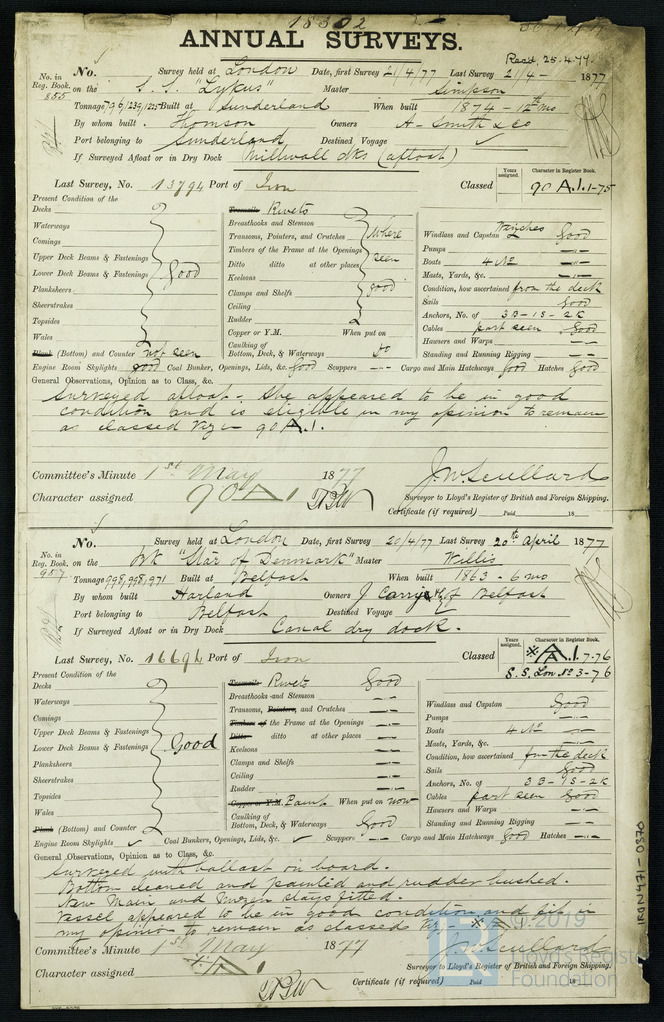 18302
ANNUAL SURVEYS.
Recd. 25.4.77
No. Survey held at London Date, first Survey 21/4/77 Last Survey 21/4 - 1877
No. in Reg. Book. 855 on the S.S. "Lykus" Master Simpson
Tonnage 796/1239/1215 Built at Sunderland When built 1874 - 12th mo
By whom built Thomson Owners A - Smith & Co
Port belonging to Sunderland Destined Voyage ✓
If Surveyed Afloat or in Dry Dock Millwall dks (afloat)
Last Survey, No. 13794 Port of Iron Classed
Years assigned.
Character in Register Book.
90 A.1. 1-75
Present Condition of the
Decks
Waterways
Comings
Upper Deck Beams & Fastenings
Lower Deck Beams & Fastenings good
Planksheers
Sheerstrakes
Topsides
Wales
Plank (Bottom) and Counter not seen
Treenails Rivets
Breasthooks and Stemson
Transoms, Pointers, and Crutches where
Timbers of the Frame at the Openings
Ditto ditto at other places seen
Keelsons
Clamps and Shelfs good
Ceiling
Rudder
Copper or Y.M. When put on
Caulking of Bottom, Deck, & Waterways do
Windlass and Capstan Winches Good
Pumps -"-
Boats 4 No -"-
Masts, Yards, &c. -"-
Condition, how ascertained from the deck
Sails Good
Anchors, No. of 3B-1S-2K
Cables part seen Good
Hawsers and Warps -"-
Standing and Running Rigging -"-
Engine Room Skylights good Coal Bunker, Openings, Lids, &c. Good Scuppers -"- Cargo and Main Hatchways Good Hatches Good
General Observations, Opinion as to Class, &c.
Surveyed afloat - She appeared to be in good
condition and is eligible in my opinion to remain
as classed viz - 90 A.1.
Committee's Minute 1st May 1877
J.W. Scullard
Character assigned 90 A 1
Surveyor to Lloyd's Register of British and Foreign Shipping.
Certificate (if required) Paid 18
No. Survey held at London Date, first Survey 20/4/77 Last Survey 20th April 1877
No. in Reg. Book. 957 on the Bk "Star of Denmark" Master Willis
Tonnage 998,998,971 Built at Belfast When built 1863 - 6 mo
By whom built Harland Owners J Corry of Belfast
Port belonging to Belfast Destined Voyage
If Surveyed Afloat or in Dry Dock Canal dry dock.
Last Survey, No. 16694 Port of Iron Classed
Years assigned.
Character in Register Book.
A.1. 7-76
S.S. Lon No 3-76
Present Condition of the
Decks
Waterways
Comings
Upper Deck Beams & Fastenings
Lower Deck Beams & Fastenings Good
Planksheers
Sheerstrakes
Topsides
Wales
Plank (Bottom) and Counter
Treenails Rivets Good
Breasthooks and Stemson -"-
Transoms, Pointers, and Crutches -"-
Timbers of the Frame at the Openings -"-
Ditto ditto at other places -"-
Keelsons -"-
Clamps and Shelfs -"-
Ceiling -"-
Rudder -"-
Copper or Y.M. Paint When put on now
Caulking of Bottom, Deck, & Waterways Good
Windlass and Capstan Good
Pumps -"-
Boats 4 No -"-
Masts, Yards, &c. -"-
Condition, how ascertained from the deck
Sails Good
Anchors, No. of 3B-1S-2K
Cables part seen Good
Hawsers and Warps -"-
Standing and Running Rigging -"-
Engine Room Skylights ✓ Coal Bunkers, Openings, Lids, &c. ✓ Scuppers -"- Cargo and Main Hatchways Good Hatches -"-
General Observations, Opinion as to Class, &c.
Surveyed with ballast on board.
Bottom cleaned and painted and rudder bushed.
New Main and Mizen stays fitted.
Vessel appeared to be in good condition and fit in
my opinion to remain as classed viz - A 1
Committee's Minute 1st May 1877
J.W. Scullard
Character assigned A 1
Surveyor to Lloyd's Register of British and Foreign Shipping.
Certificate (if required) Paid 18
IRON471-0370
© 2019
Lloyd's Register
Foundation